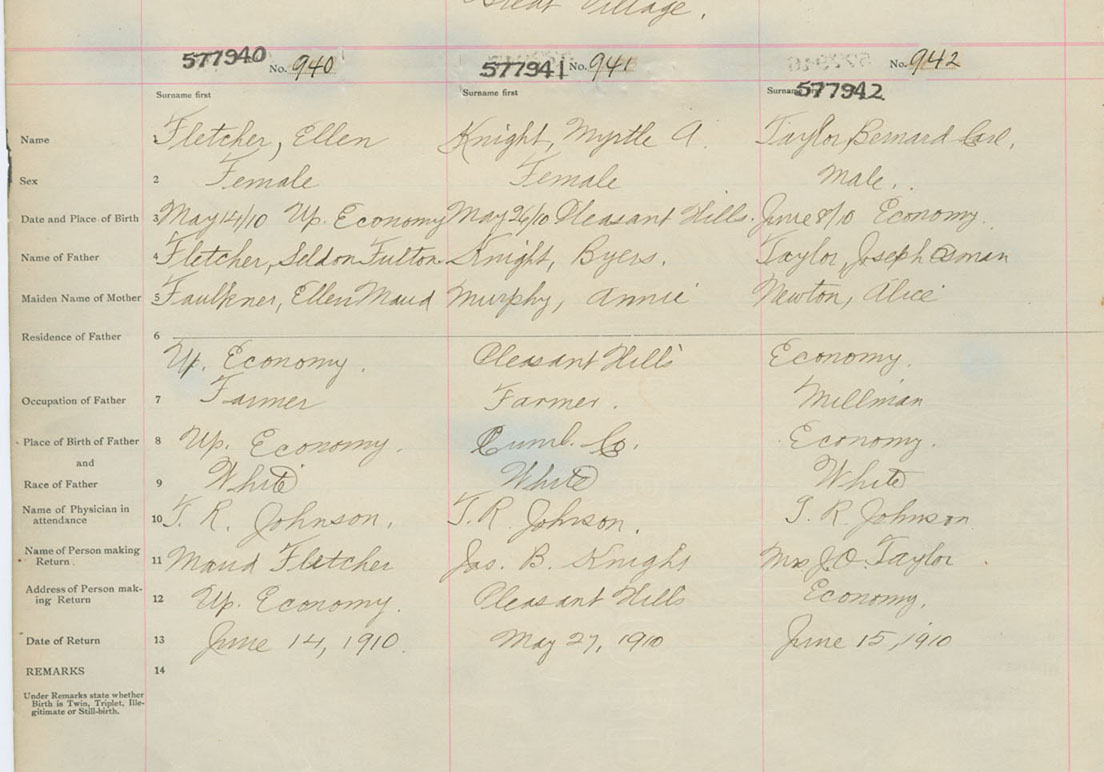 Great Village.
577940 No. 940 577941 No. 941 No. 942
Surname first Surname first Surname first 577942
Name 1 Fletcher, Ellen Knight, Myrtle A. Taylor, Bernard Carl,
Sex 2 Female Female Male.
Date and Place of Birth 3 May 14/10 Up. Economy May 26/10 Pleasant Hills. June 8/10 Economy.
Name of Father 4 Fletcher, Seldon Fulton Knight, Byers. Taylor, Joseph
Maiden Name of Mother 5 Faulkner, Ellen Maud Murphy, Annie Newton, Alice
Residence of Father 6
Up. Economy. Pleasant Hills Economy.
Occupation of Father 7 Farmer Farmer. Millman
Place of Birth of Father 8 Up. Economy. Cumb. Co. Economy.
and
Race of Father 9 White White White
Name of Physician in
attendance 10 T. R. Johnson, T. R. Johnson. T. R. Johnson
Name of Person making
Return 11 Maud Fletcher Jas. B. Knight Mrs J. O. Taylor
Address of Person mak-
ing Return 12 Up. Economy. Pleasant Hills Economy.
Date of Return 13 June 14, 1910. May 27, 1910 June 15, 1910
REMARKS 14
Under Remarks state whether
Birth is Twin, Triplet, Ille-
gitimate or Still-birth.